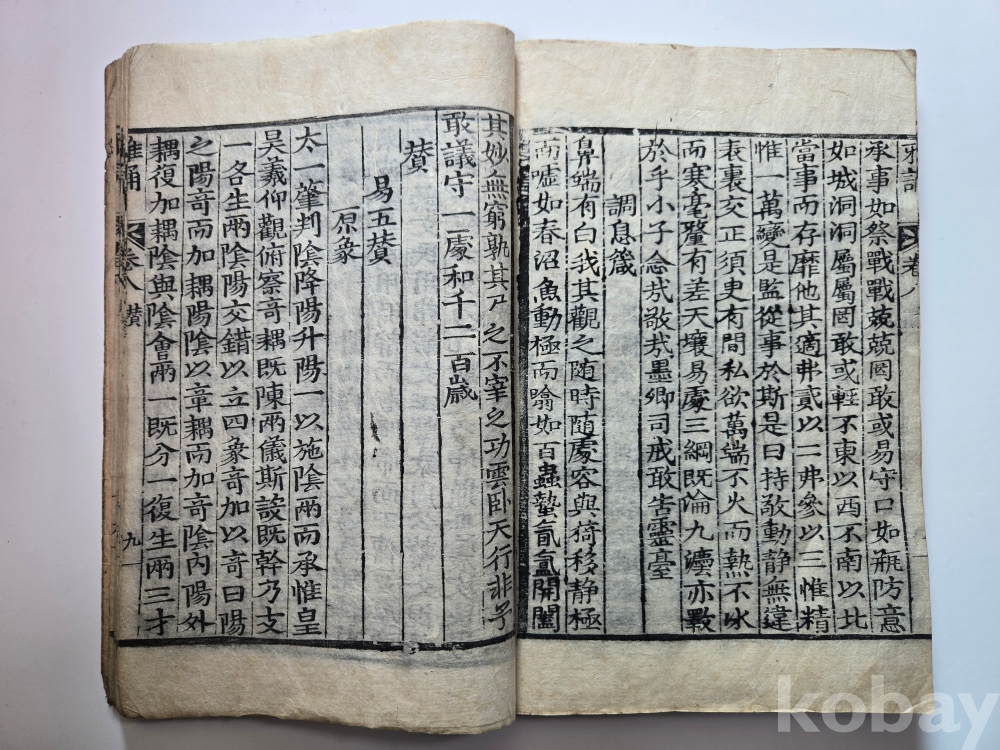 雅誦 卷八
承事如祭戰戰兢兢罔敢或易守口如瓶防意
如城洞洞屬屬罔敢或輕不東以西不南以北
當事而存靡他其適弗貳以二弗參以三惟精
惟一萬變是監從事於斯是曰持敬動靜無違
表裏交正須臾有間私欲萬端不火而熱不氷
而寒毫釐有差天壤易處三綱旣淪九瀍亦斁
於乎小子念㢤敬㢤墨卿司戒敢告靈臺
調息箴
鼻端有白我其觀之隨時隨處容與猗移靜極
而噓如春沼魚動極而噏如百蟲蟄氤氳開闔
其妙無窮孰其尸之不宰之功雲卧天行非予
敢議守一處和千二百歲
賛
易五賛
原象
太一肇判陰降陽升陽一以施陰兩而承惟皇
昊羲仰觀俯察奇耦旣陳兩儀斯設旣幹乃支
一各生兩陰陽交錯以立四象奇加以奇曰陽
之陽奇而加耦陽陰以章耦而加奇陰內陽外
耦復加耦陰與陰會兩一旣分一復生兩三才
雅誦 卷八 賛 九
kobay